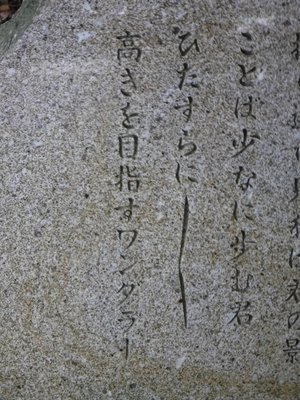 の影
ことば少なに歩む君
ひたすらに――
高きを目指すワンダラー